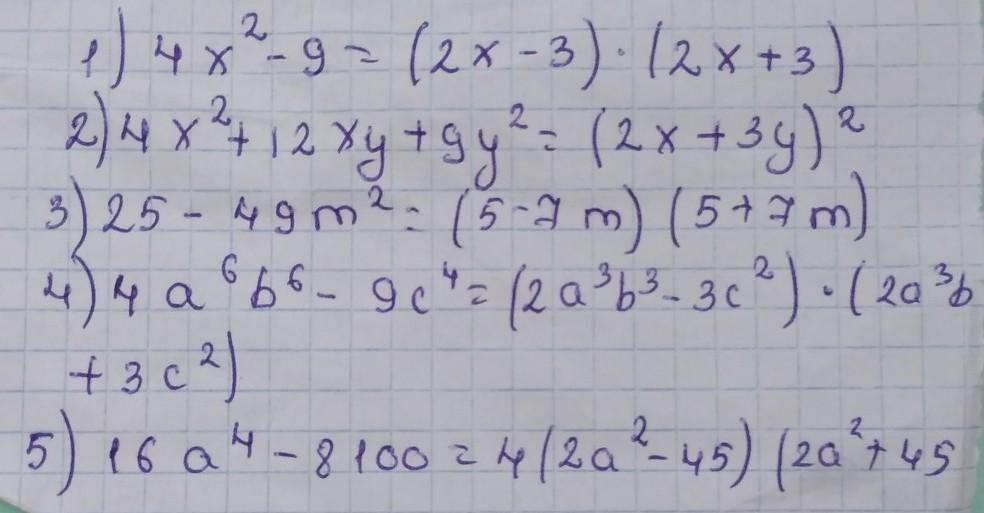 1) 4x² - 9 = (2x - 3) · (2x + 3)
2) 4x² + 12xy + 9y² = (2x + 3y)²
3) 25 - 49m² = (5 - 7m) (5 + 7m)
4) 4a⁶b⁶ - 9c⁴ = (2a³b³ - 3c²) · (2a³b
+ 3c²)
5) 16a⁴ - 8100 = 4(2a² - 45) (2a² + 45